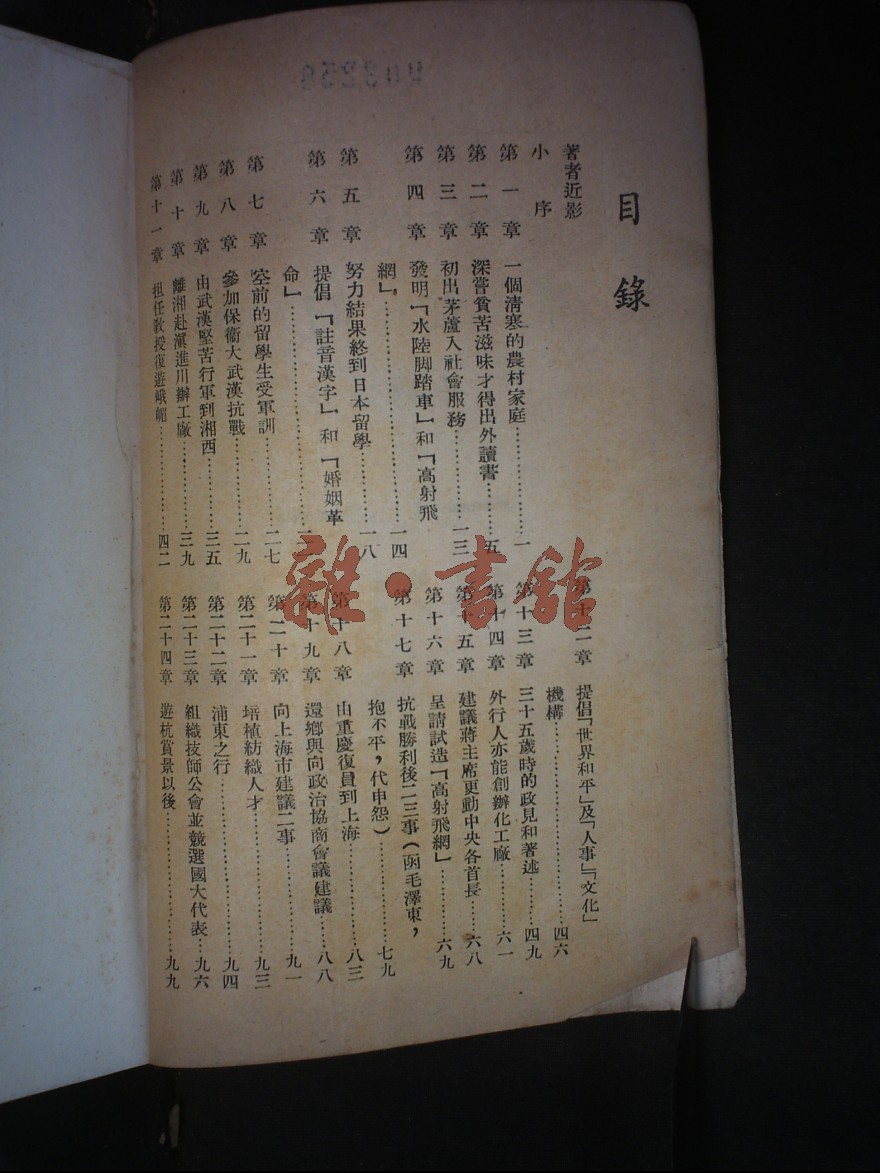 目錄
著者近影
小序
第一章 一個淸寒的農村家庭……一
第二章 深嘗貧苦滋味才得出外讀書……五
第三章 初出茅蘆入社會服務……一三
第四章 發明「水陸脚踏車」和「高射飛
網」……一四
第五章 努力結果終到日本留學……一八
第六章 提倡「註音漢字」和「婚姻革
命」……
第七章 空前的留學生受軍訓……二七
第八章 參加保衞大武漢抗戰……二九
第九章 由武漢堅苦行軍到湘西……三五
第十章 離湘赴滇進川辦工廠……三九
第十一章 担任敎授復遊峨嵋……四二
第十二章 提倡「世界和平」及「人事」「文化」
機構……四六
第十三章 三十五歲時的政見和著述……四九
第十四章 外行人亦能創辦化工廠……六一
第十五章 建議蔣主席更動中央各首長……六八
第十六章 呈請試造「高射飛網」……六九
第十七章 抗戰勝利後二三事(函毛澤東,
抱不平,代申怨)……七九
第十八章 由重慶復員到上海……八三
第十九章 還鄉與向政治協商會議建議……八八
第二十章 向上海市建議二事……九一
第二十一章 培植紡織人才……九三
第二十二章 浦東之行……九四
第二十三章 組織技師公會並競選國大代表……九六
第二十四章 遊杭賞景以後……九九
雜·書館